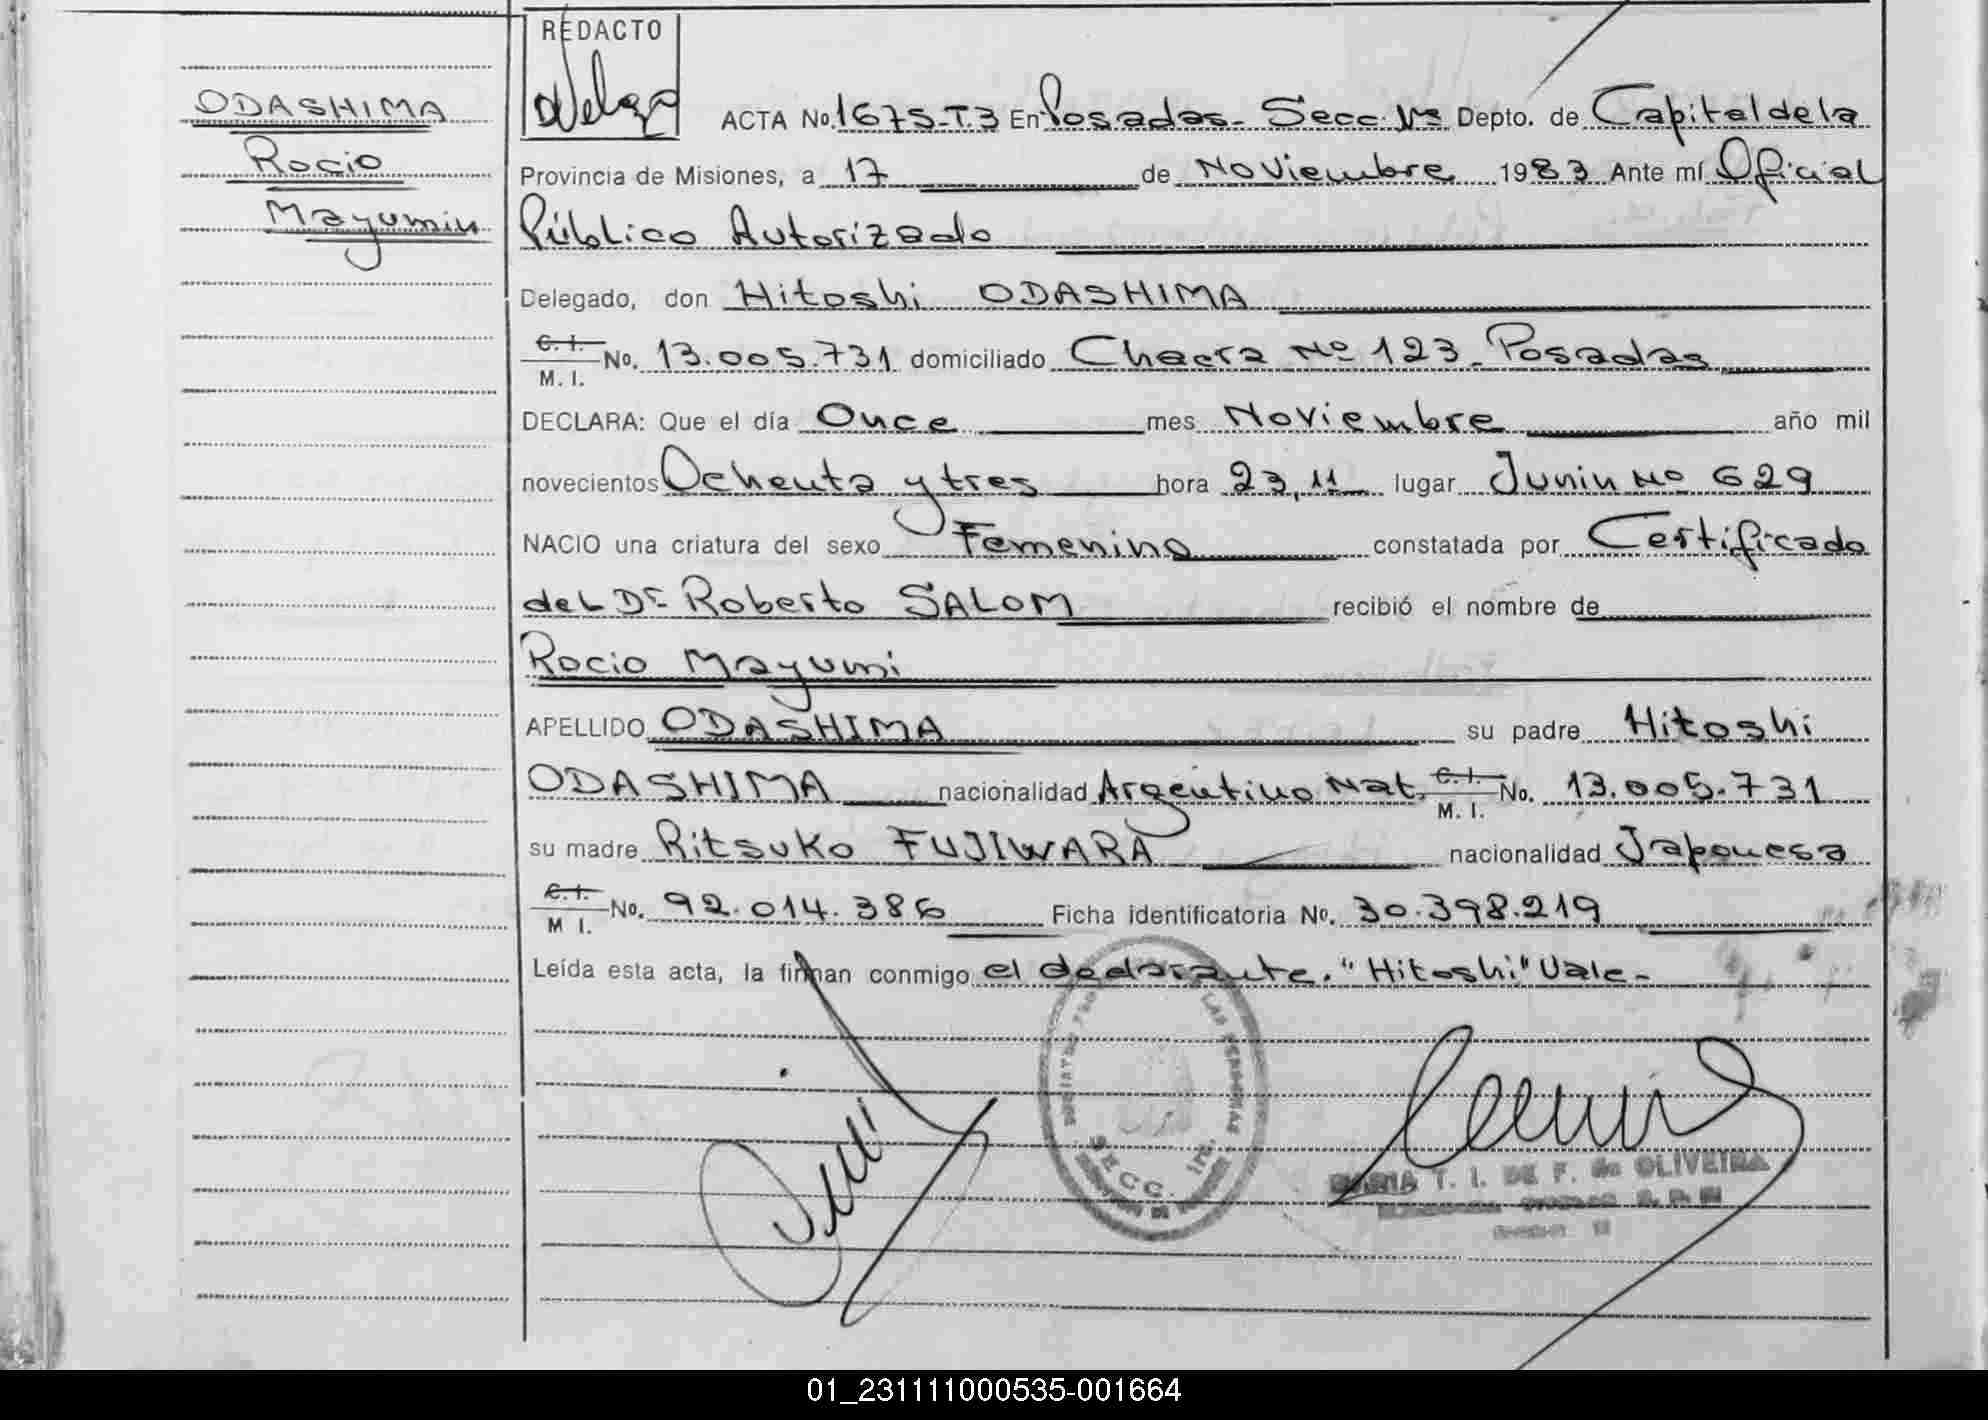 ODASHIMA
Rocio
Mayumin
REDACTO
ACTA No. 1675-T.3 En Posadas - Secc. 1ra Depto. de Capital de la
Provincia de Misiones, a 17 de Noviembre 1983 Ante mí Oficial
Público Autorizado
Delegado, don Hitoshi ODASHIMA
C. I. / M. I. No. 13.005.731 domiciliado Chacra No 123 - Posadas
DECLARA: Que el día Once mes Noviembre año mil
novecientos Ochenta y tres hora 23,11 lugar Junin No 629
NACIO una criatura del sexo Femenino constatada por Certificado
del Dr. Roberto SALOM recibió el nombre de
Rocio Mayumi
APELLIDO ODASHIMA su padre Hitoshi
ODASHIMA nacionalidad Argentino Nat. C. I. / M. I. No. 13.005.731
su madre Ritsuko FUJIWARA nacionalidad Japonesa
C. I. / M I. No. 92.014.386 Ficha identificatoria No. 30.398.219
Leída esta acta, la firman conmigo el declarante. "Hitoshi" Vale -
LAS PERSONAS
SECC. 1ra.
MARIA T. I. DE F. de OLIVEIRA
01_231111000535-001664